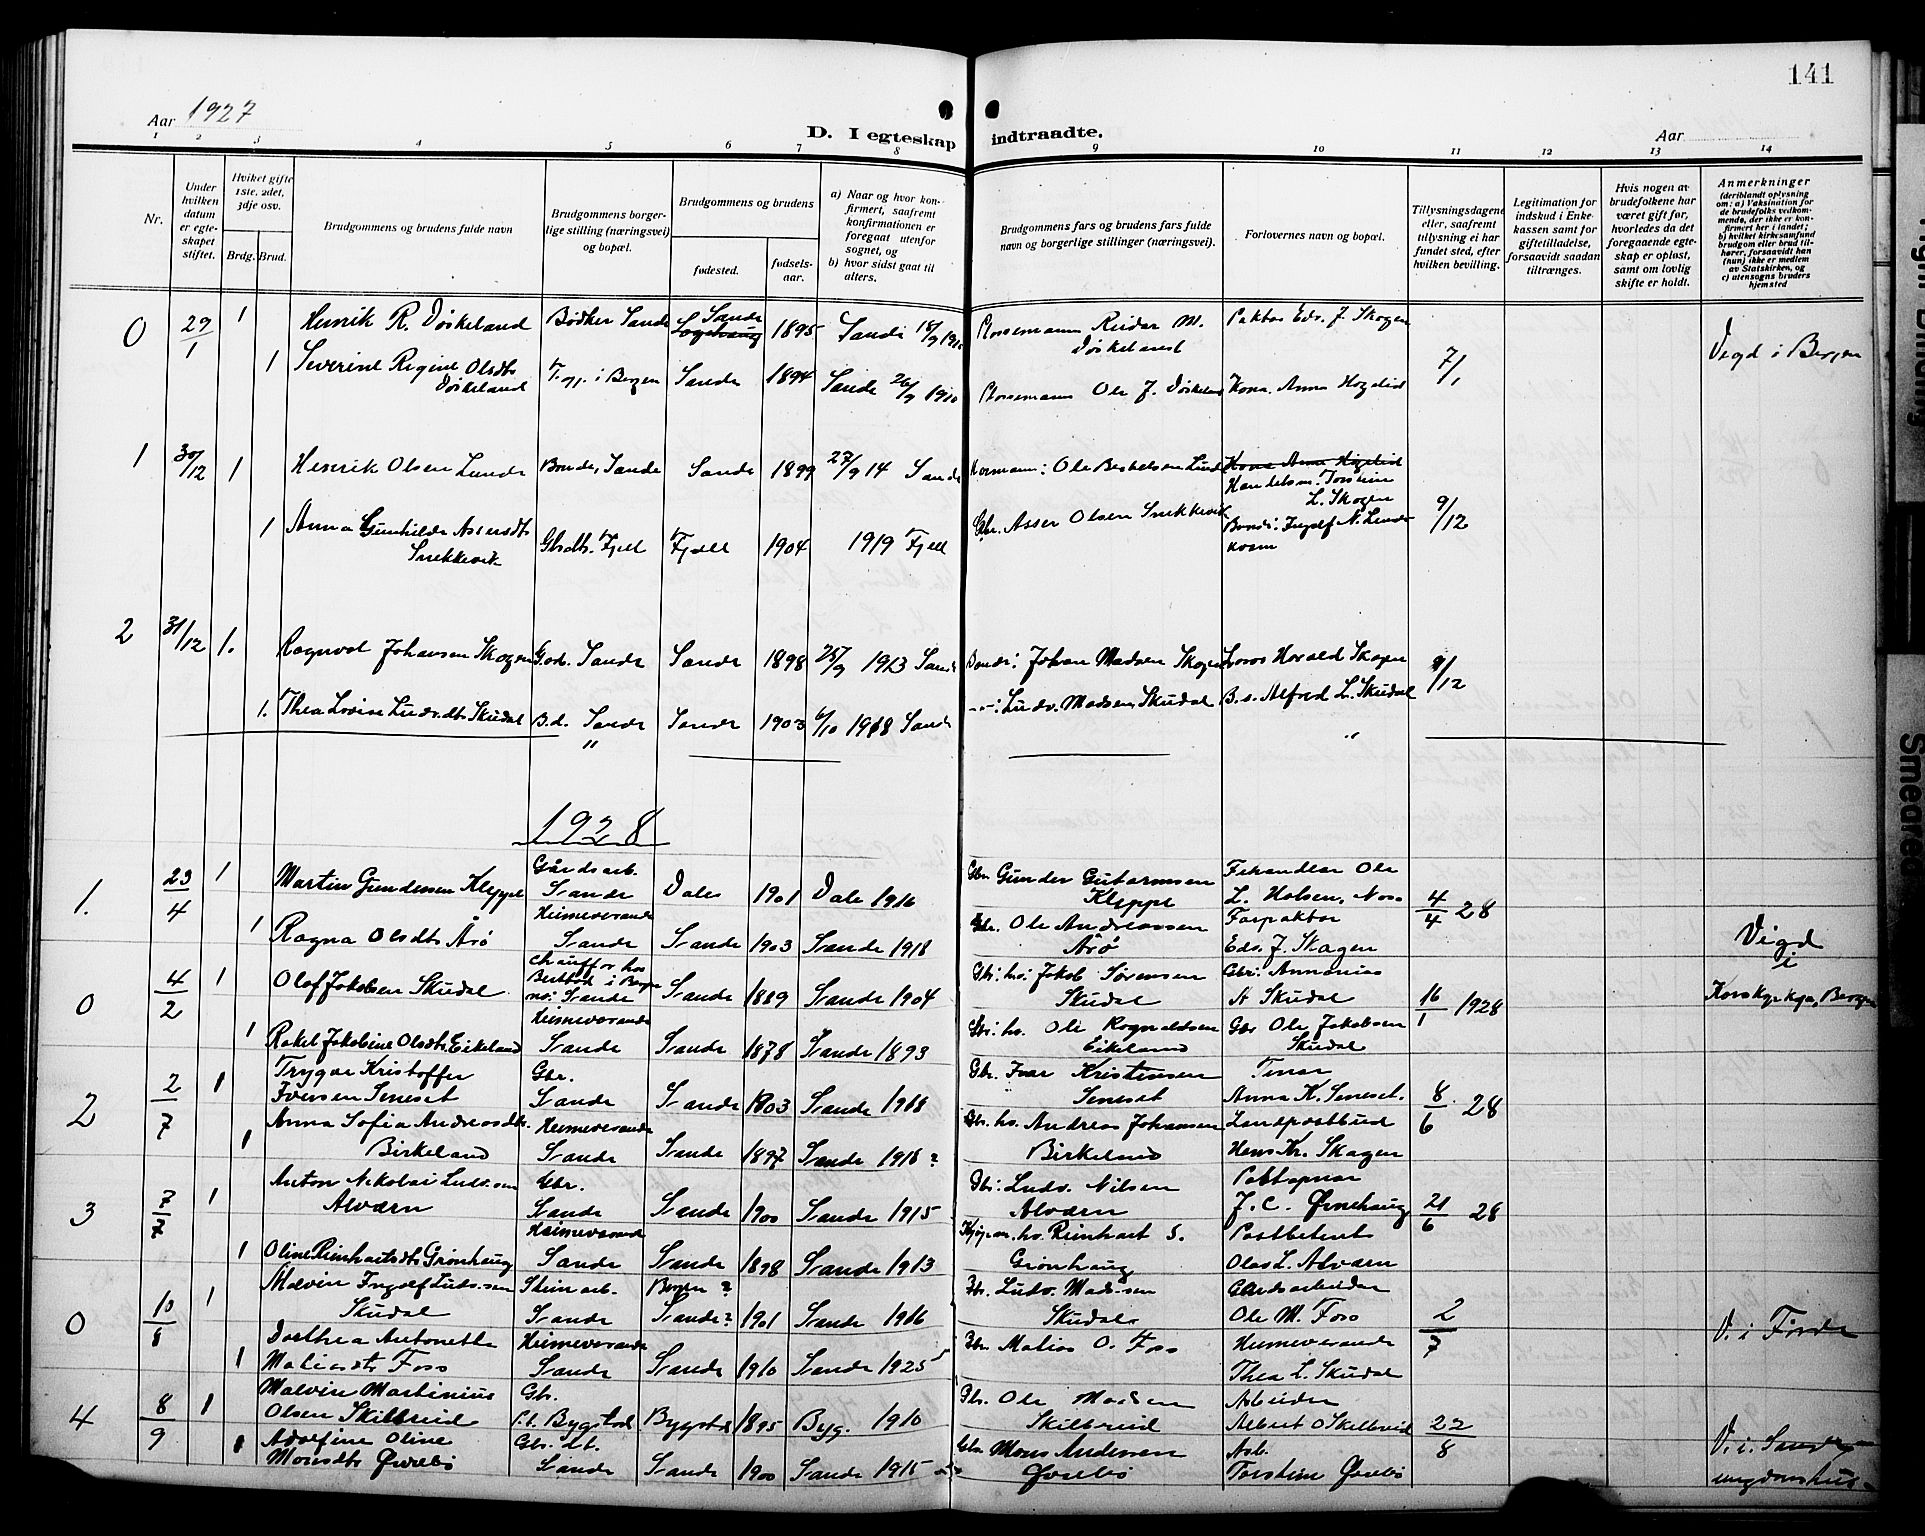 141
Aar 1927
D. I egteskap indtraadte.
Aar
1 2 3 4 5 6 7 8 9 10 11 12 13 14
Nr.
Under hvilken datum er egteskapet stiftet.
Hvilket gifte 1ste, 2det, 3dje osv.
Brdg. Brud.
Brudgommens og brudens fulde navn
Brudgommens borgerlige stilling (næringsvei) og bopæl.
Brudgommens og brudens
fødested.
fødselsaar.
a) Naar og hvor konfirmert, saafremt konfirmationen er foregaat utenfor sognet, og
b) hvor sidst gaat til alters.
Brudgommens fars og brudens fars fulde navn og borgerlige stillinger (næringsvei).
Forlovernes navn og bopæl.
Tillysningsdagene eller, saafremt tillysning ei har fundet sted, efter hvilken bevilling.
Legitimation for indskud i Enkekassen samt for giftetilladelse, forsaavidt saadan tiltrænges.
Hvis nogen av brudefolkene har været gift før, hvorledes da det foregaaende egteskap er opløst, samt om lovlig skifte er holdt.
Anmerkninger (deriblandt oplysning om: a) Vaksination for de brudefolks vedkommende, der ikke er konfirmert her i landet; b) hvilket kirkesamfund brudgom eller brud tilhører, forsaavidt han (hun) ikke er medlem av Statskirken, og c) utensogns bruders hjemsted
0 29/1 1 Henrik R. Døskeland Bødker Sande Sande 1895 Sande 18/9 1910 Reidar M. Døskeland Eds. J. Skogen 7/1 Vigd i Bergen
1 Severine Regine Olsdtr Døskeland i Bergen Sande 1894 Sande 26/9 1910 Ole J. Døskeland Kona Anna Hogelid
1 30/12 1 Henrik Olsen Lunde Bonde, Sande Sande 1899 27/9 14 Sande Ole Lunde Kona Anna Hogelid
Handelsm. Torstein L. Skogen 9/12
1 Anna Gunhilde Assersdtr Snekkevik Gbdtr. Fjell Fjell 1904 1919 Fjell Gbr. Asser Olsen Snekkevik Bonde: Ingolf N. Lunde
2 31/12 1. Ragnval Johansen Skogen Sande Sande 1898 25/9 1913 Sande Bonde: Johan Madsen Skogen Harald Skogen 9/12
1. Thea Lovise Ludv.dtr Skudal B.d. Sande Sande 1903 6/10 1918 Sande --: Ludv. Madsen Skudal B.s. Alfred L. Skudal
" "
1928
1. 23/4 1 Martin Gundersen Kleppe Gårdsarb. Sande Dale 1901 Dale 1916 Gbr. Gunder Kleppe Ole L. Holsen 4/4 28
1 Ragna Olsdtr Årø Heimeverande Sande Sande 1903 Sande 1918 Gbr. Ole Andreassen Årø Eds. J. Skagen
0 4/2 1 Olaf Jakobsen Skudal Chauffør hos i Bergen Sande Sande 1889 Sande 1904 Gbr. Jakob Sørensen Skudal Gbr. Annanias A Skudal 16/1 1928 Vigd i Korskyrkja, Bergen
1 Rakel Jakobine Olsdtr. Eikeland Heimeverande Sande Sande 1878 Sande 1893 Gbr. Ole Rognaldsen Eikeland Gbr Ole Jakobsen Skudal
2 2/7 1 Trygve Kristoffer Iversen Seneset Gbr. Sande Sande 1903 Sande 1918 Gbr. Ivar Kristensen Seneset Anna K. Seneset. 8/6 28
1 Anna Sofia Andreasdtr. Birkeland Heimeverande Sande Sande 1897 Sande 1918? Gbr. Andreas Johansen Birkeland Landpostbud Hans Kr. Skagen
3 7/7 1 Anton Nikolai Ludv.sen Alværn Gbr. Sande Sande 1900 Sande 1915 Gbr. Ludv. Nilsen Alværn J. C. Grønehaug 21/6 28
1 Oline Reinhartsdtr Grønhaug Heimeverande Sande Sande 1898 Sande 1913 Reinhart S. Grønhaug Postbetjent Olav L. Alværn
0 10/8 1 Malvin Ingolf Ludv.sen Skudal Steinarb. Sande Bergen? Sande? 1901 Sande 1916 Gbr. Ludv. Madssen Skudal Gardsarbeidar Ole M. Foss 2/7 V. i Førde
1 Dorthea Antonette Matiasdtr Foss Heimeverande Sande Sande 1910 Sande 1925 Gbr. Matias O. Foss Heimeverande Thea L. Skudal
4 8/9 1 Malvin Martinius Olsen Skilbreid Gbr. Bygstad Bygstad 1895 Byg. 1910 Gbr. Ole Madsen Skilbreid Arbeider Albert O Skilbreid 22/8
1 Adolfine Oline Monsdtr Øvrebø Gbr. dt. Sande Sande 1900 Sande 1915 Gbr Mons Andersen Øvrebø Arb. Torstein Øvrebø V. i. Sande ungdomshus